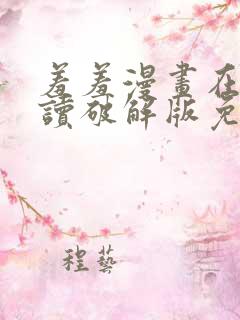 羞羞漫畫在
讀破解版免
程藝